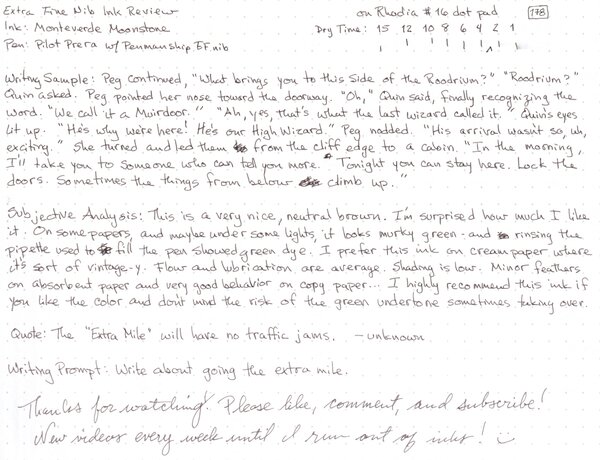 Extra Fine Nib Ink Review on Rhodia #16 dot pad 178
Ink: Monteverde Moonstone Dry Time: 15 12 10 8 6 4 2 1
Pen: Pilot Prera w/ Penmanship EF nib
Writing Sample: Peg continued, "What brings you to this side of the Roodrium?" "Roodrium?"
Quin asked. Peg pointed her nose toward the doorway. "Oh," Quin said, finally recognizing the
word. "We call it a Muirdoor." "Ah, yes, that's what the last wizard called it." Quin's eyes
lit up. "He's why we're here! He's our High Wizard." Peg nodded. "His arrival wasn't so, uh,
exciting." She turned and led them from the cliff edge to a cabin. "In the morning,
I'll take you to someone who can tell you more. Tonight you can stay here. Lock the
doors. Sometimes the things from below climb up."
Subjective Analysis: This is a very nice, neutral brown. I'm surprised how much I like
it. On some papers, and maybe under some lights, it looks murky green - and rinsing the
pipette used to fill the pen showed green dye. I prefer this ink on cream paper where
it's sort of vintage-y. Flow and lubrication are average. Shading is low. Minor feathers
on absorbent paper and very good behavior on copy paper... I highly recommend this ink if
you like the color and don't mind the risk of the green undertone sometimes taking over.
Quote: The "Extra Mile" will have no traffic jams. - unknown
Writing Prompt: Write about going the extra mile.
Thanks for watching! Please like, comment, and subscribe!
New videos every week until I run out of inks! :)